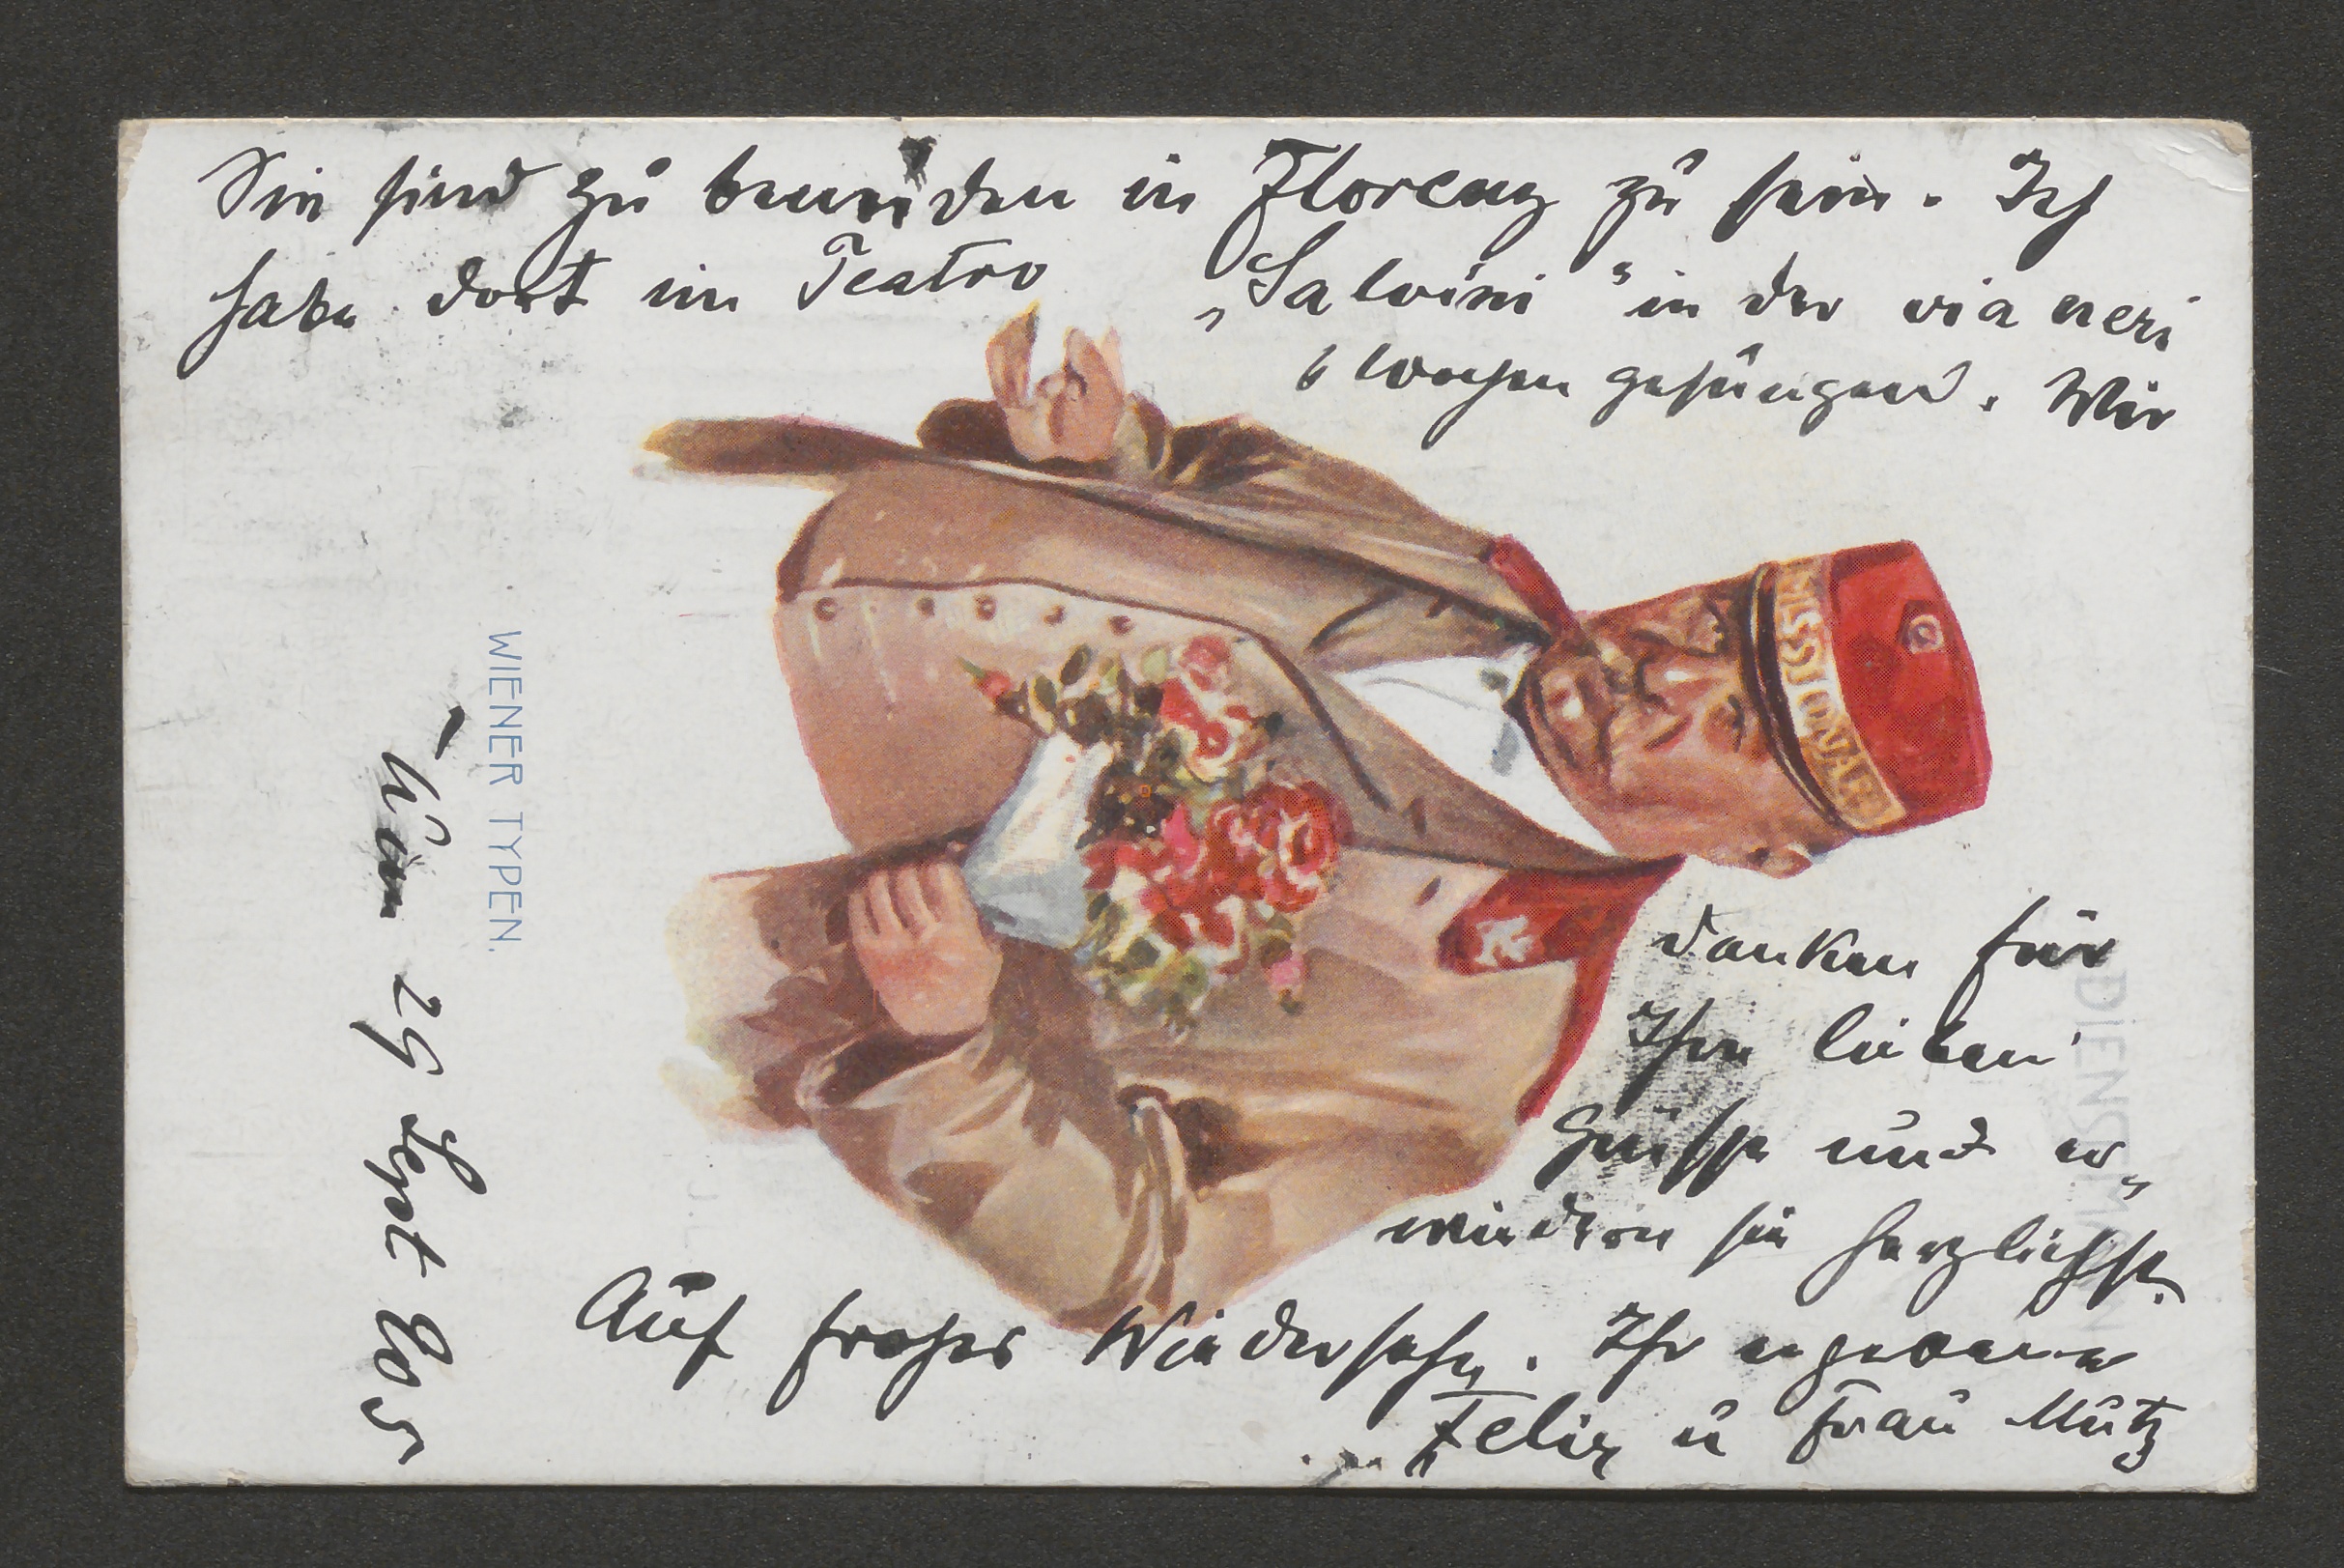 Sie sind zu beneiden in Florenz zu sein. Ich
habe dort im Teatro „Salvini" in der via neri
6 Wochen gesungen. Wir
danken für
Ihre lieben
Grüsse und er„
wiedern sie herzlichst.
Auf frohes Wiedersehn. Ihr ergebener
Felix u Frau Mütz
29 Sept 905
WIENER TYPEN.
DIENSTMANN
J. L.